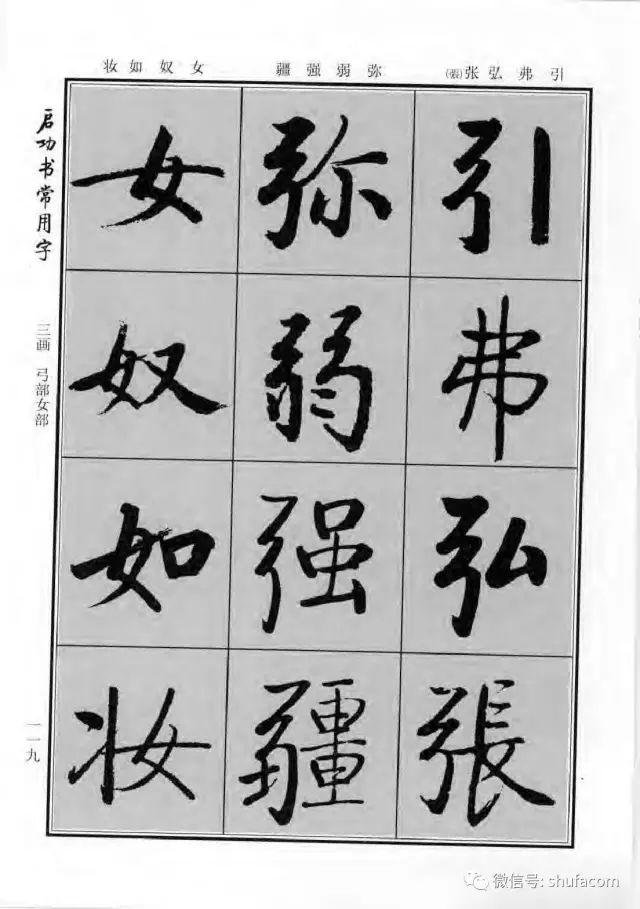 引 弗 弘 张(張)
弥 弱 强 疆
女 奴 如 妆
启功书常用字
三画 弓部女部
一一九
引
弗
弘
張
弥
弱
强
疆
女
奴
如
妆
微信号: shufacom